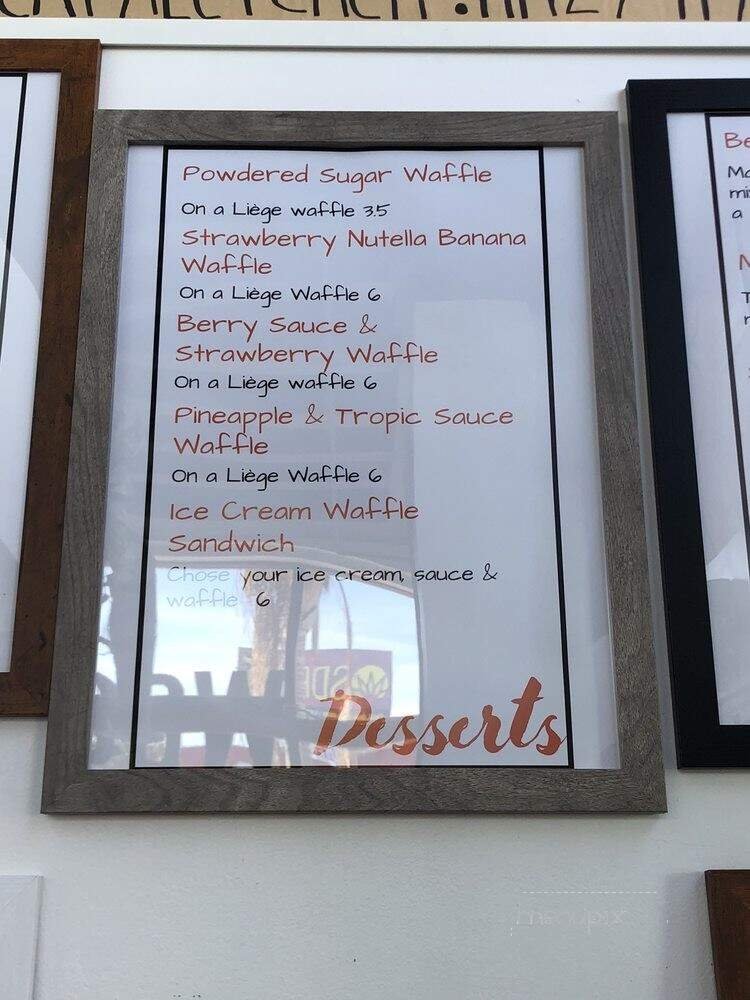 Powdered Sugar Waffle
On a Liège waffle 3.5
Strawberry Nutella Banana
Waffle
On a Liège Waffle 6
Berry Sauce &
Strawberry Waffle
On a Liège waffle 6
Pineapple & Tropic Sauce
Waffle
On a Liège Waffle 6
Ice Cream Waffle
Sandwich
Chose your ice cream, sauce &
waffle 6
Desserts
Be
a